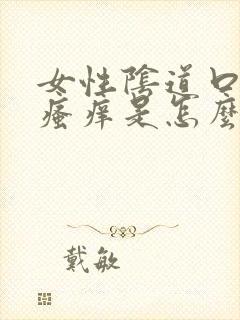 女性陰道口
瘙痒是怎麼
戴敏